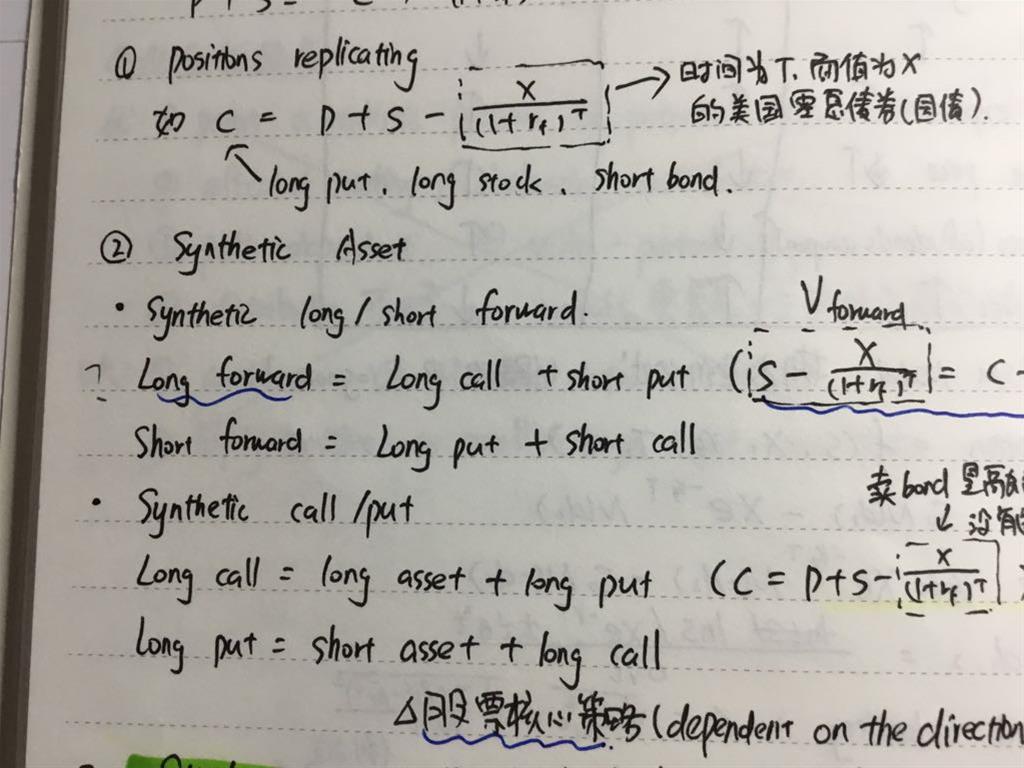 ① Positions replicating
to C = P + S - X/(1+rf)^T → 时间为T、面值为X
的美国零息债券(国债).
long put、long stock、short bond.
② Synthetic Asset
· Synthetic long / short forward.
V forward
? Long forward = Long call + short put (S - X/(1+rf)^T = C -
Short forward = Long put + short call
· Synthetic call / put
卖 bond 是
↓ 没有
Long call = long asset + long put (C = P+S- X/(1+rf)^T
Long put = short asset + long call
股票核心策略 (dependent on the direction